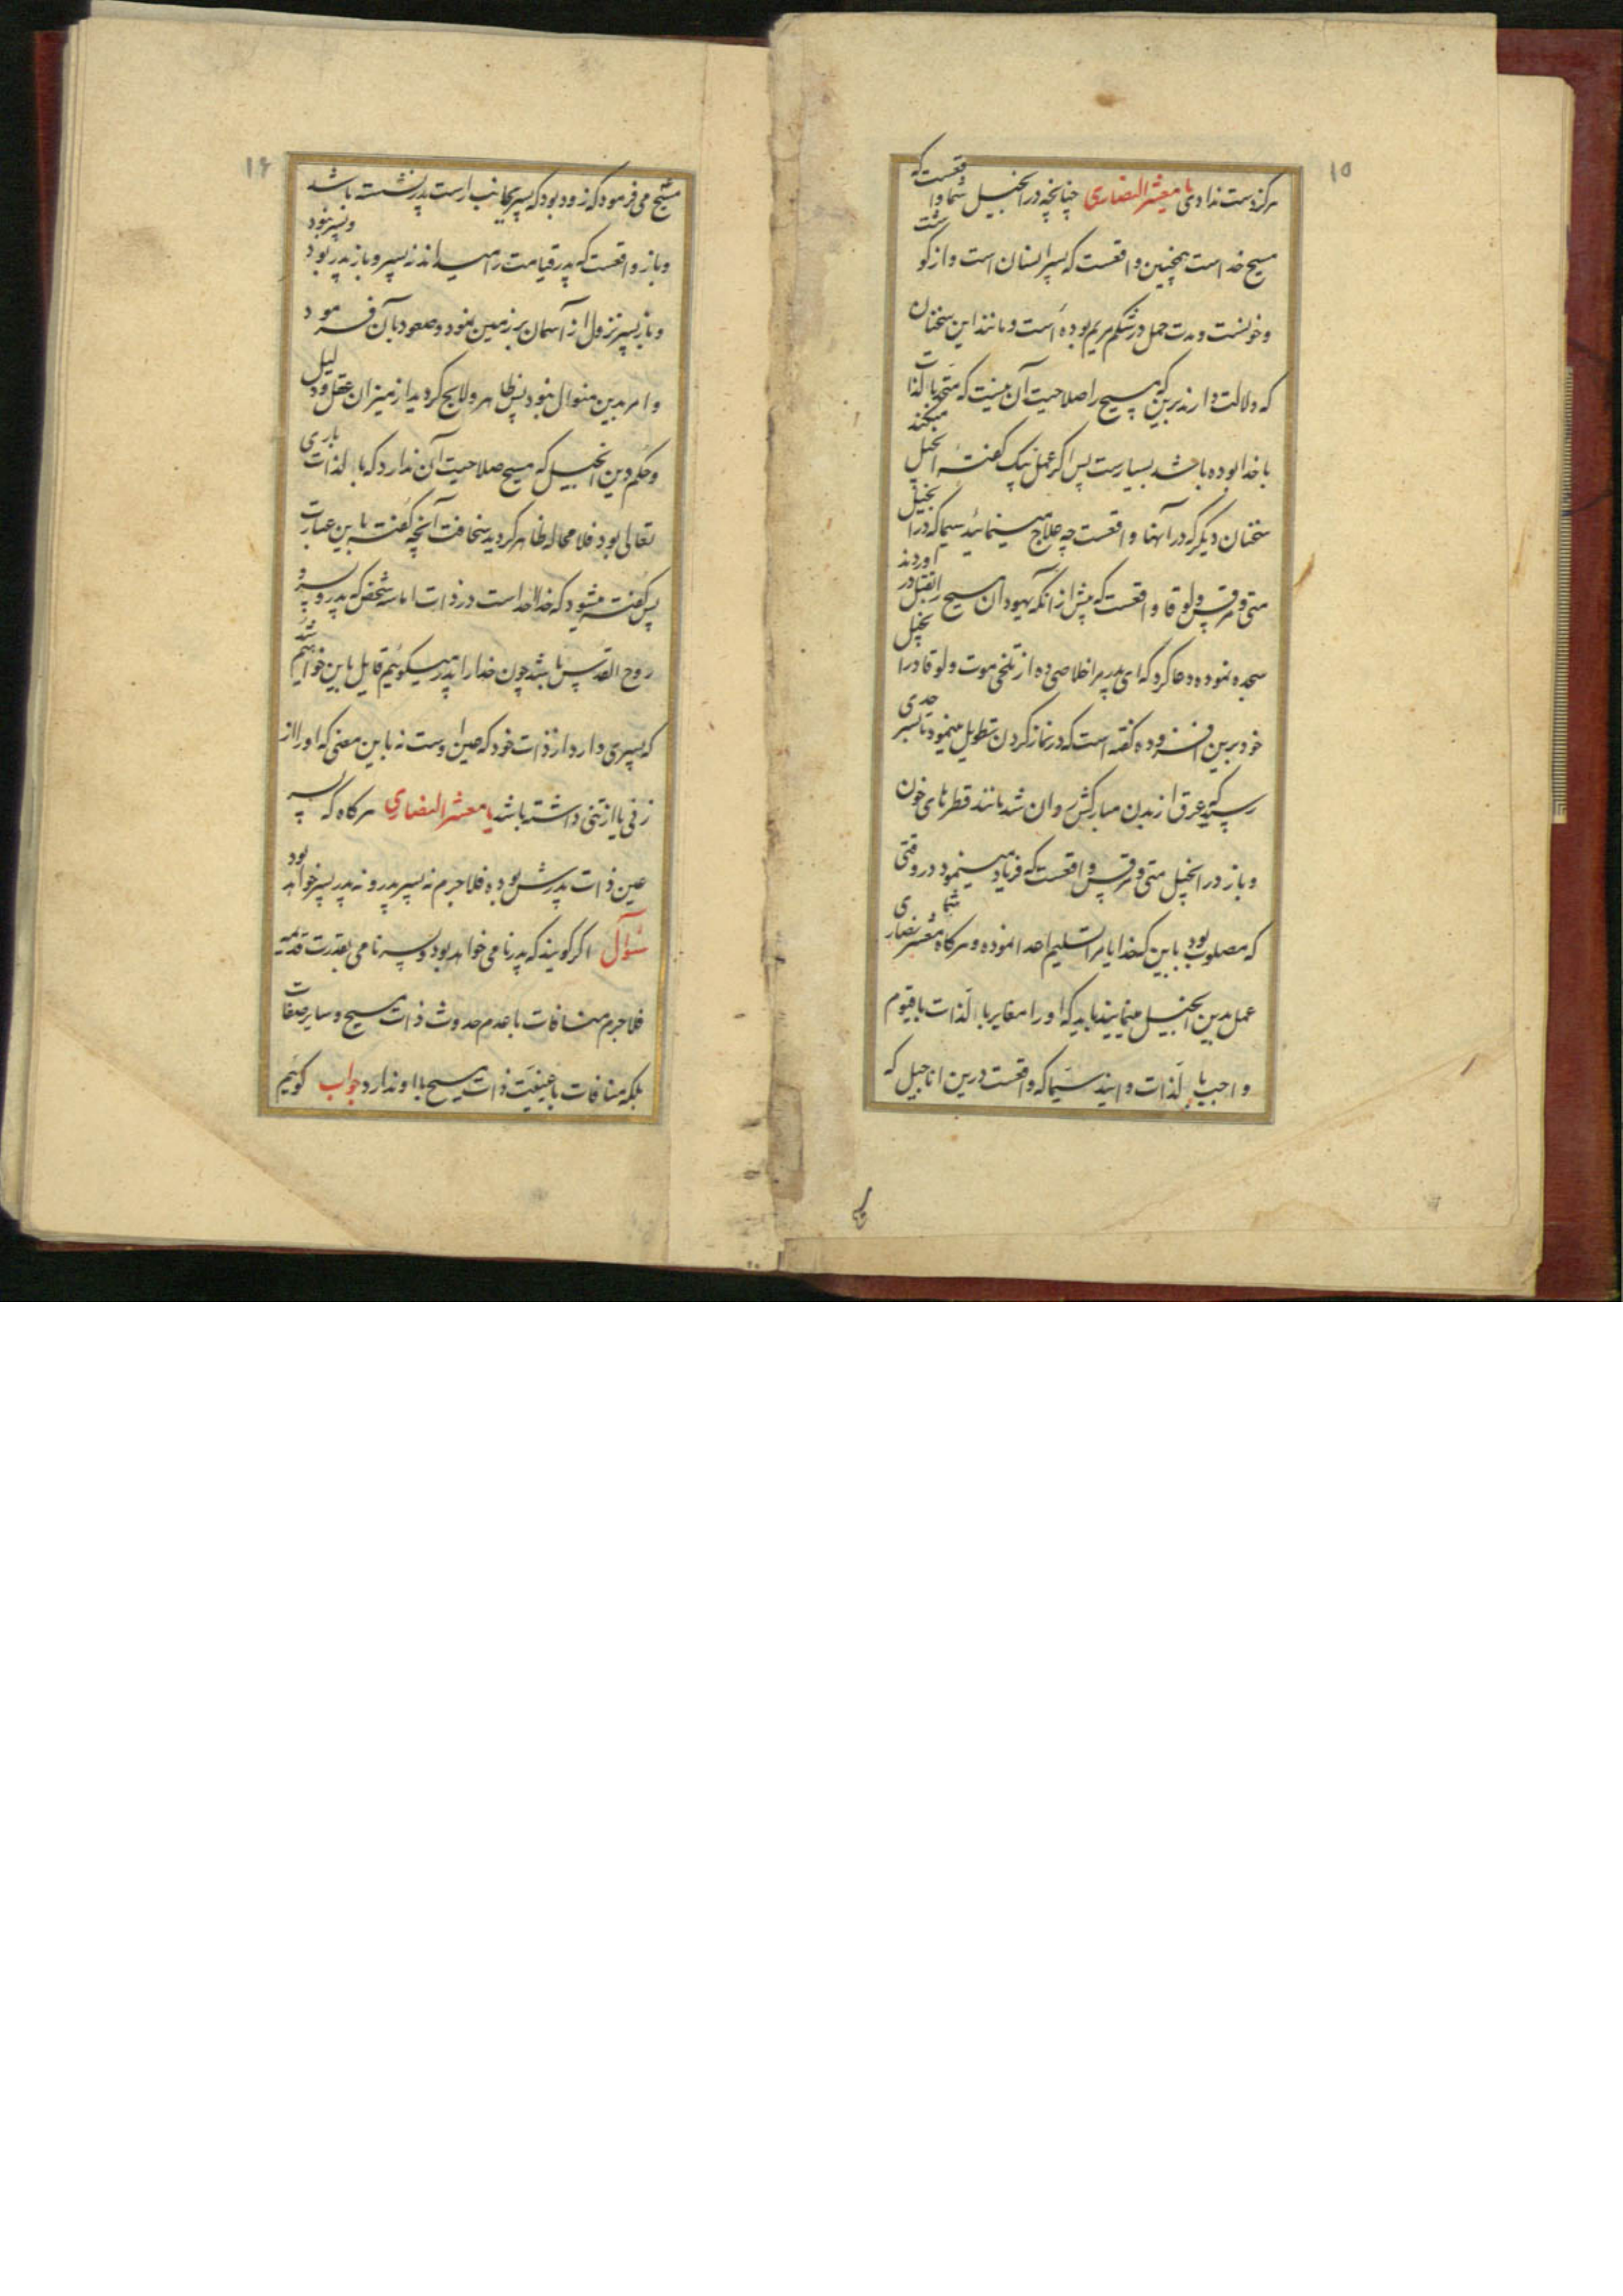 ۱۵
هرگز دست ندادی یا معشر النصاری چنانچه در انجیل شما واقعست که
مسیح خداست همچنین واقعست که پسر انسان است و از گوشت
و خونست و مدت حمل در شکم مریم بوده است و مانند این سخنان
که دلالت دارند برین که مسیح را صلاحیت آن نیست که متحد بالذات
با خدا بوده باشد بسیارست پس اگر عمل بیک گفتهٔ انجیل میکنند
سخنان دیگر که در آنها واقعست چه علاج مینمائید سیما که در انجیل
متی و مرقس و لوقا واقعست که پیش از آنکه یهودان مسیح را بقتل در آوردند
سجده نموده دعا کرد که ای پدر مرا خلاصی ده از تلخی موت و لوقا در انجیل
خود برین افزوده گفته است که در نماز کردن تطویل مینمود تا بسر حدی
رسید که عرق از بدن مبارکش روان شد مانند قطرهای خون
و باز در انجیل متی و مرقس واقعست که فریاد مینمود در وقتی
که مصلوب بود باین که خدایا مرا تسلیم اعدا نموده و هرگاه شما معشر نصاری
عمل بدین انجیل مینمایید باید که او را مغایر بالذات با قیوم
واجب بالذات دانید سیما که واقعست درین اناجیل که
۱۶
مسیح می فرمود که زود بود که پسر بجانب راست پدر نشسته باشد
و باز واقعست که پدر قیامت را میداند نه پسر و باز پدر بود و پسر نبود
و باز پسر نزول از آسمان بر زمین نمود و صعود بآن فرمود
و امر بدین منوال نبود پس ظاهر و لایح گردید از میزان عقل و دلیل
و حکم دین انجیل که مسیح صلاحیت آن ندارد که بالذات باری
تعالی بود فلا محاله ظاهر گردید سخافت آنچه گفته باین عبارت
پس گفته میشود که خدا خداست در ذات اما سه شخص که پدر و پسر و
روح القدس باشد چون خدا را پدر میگوئیم قایل باین خواهیم شد
که پسری دارد از ذات خود که عین اوست نه باین معنی که او را از
زنی یا از تنی داشته باشد یا معشر النصاری هرگاه که پسر
عین ذات پدرش بوده فلاجرم نه پسر پدر و نه پدر پسر خواهد بود
سؤال اگر گویند که پدر نامی خواهد بود و پسر نامی بقدرت قدیمه
فلاجرم منافات با عدم حدوث ذات مسیح و سایر صفات
بلکه منافات با عینیت ذات مسیح با او ندارد جواب گوئیم